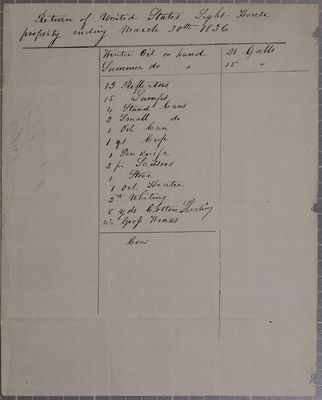 Return of United States Light House
property ending March 30th 1836
Winter Oil on hand 21 Galls
Summer do " 15 "
13 Reflectors
15 Lamps
4 Stand Cans
2 Small do
1 Oil Can
1 qt Cup
1 Pen knife
2 pr Scissors
1 Stove
1 Oil Heater
Whiting
8 yds Cotton Sheating
Gross Weaks